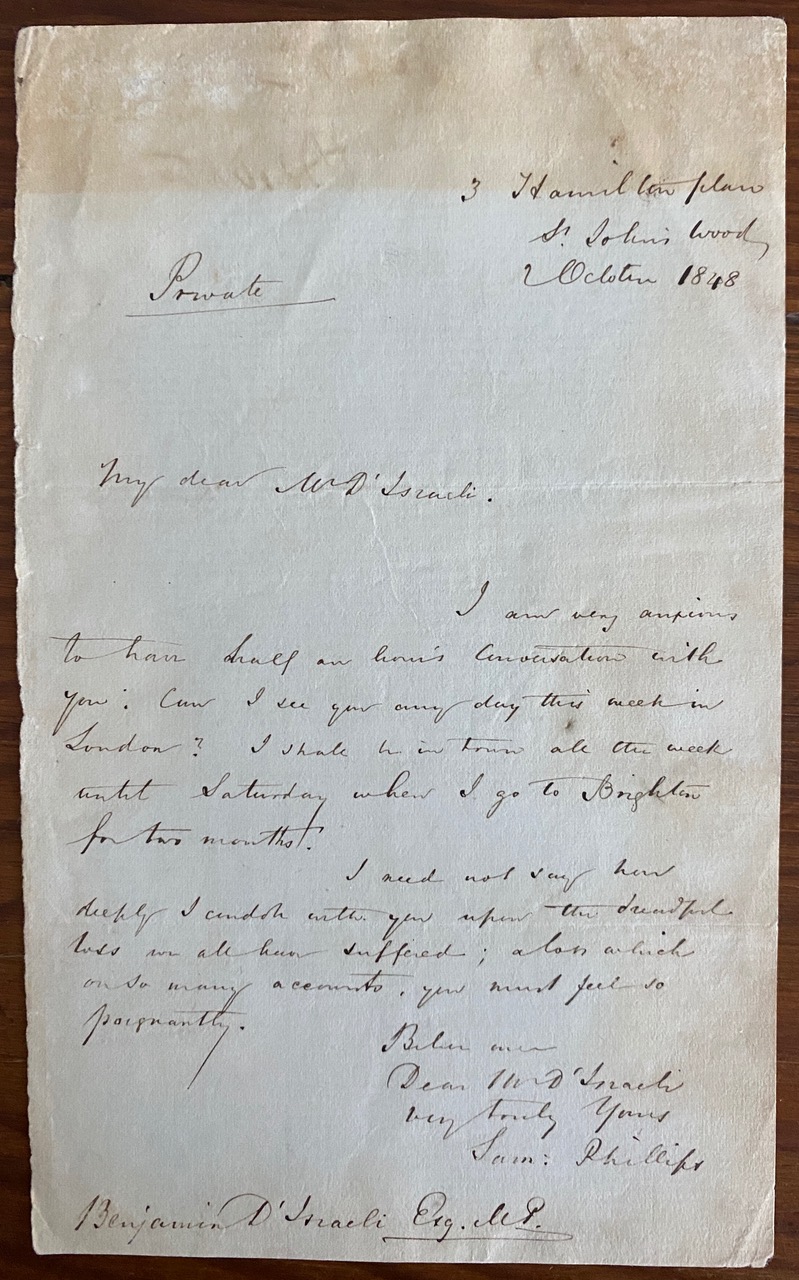 3 Hamilton place
St. John's Wood
2 October 1848
Private
My dear Mr D'Israeli.
I am very anxious
to have half an hour's Conversation with
you: Can I see you any day this week in
London? I shall be in town all the week
until Saturday when I go to Brighton
for two months!
I need not say how
deeply I condole with you upon the dreadful
loss we all have suffered; a loss which
on so many accounts, you must feel so
poignantly.
Believe me
Dear Mr D'Israeli
very truly Yours
Sam: Phillips
Benjamin D'Israeli Esq. M.P.